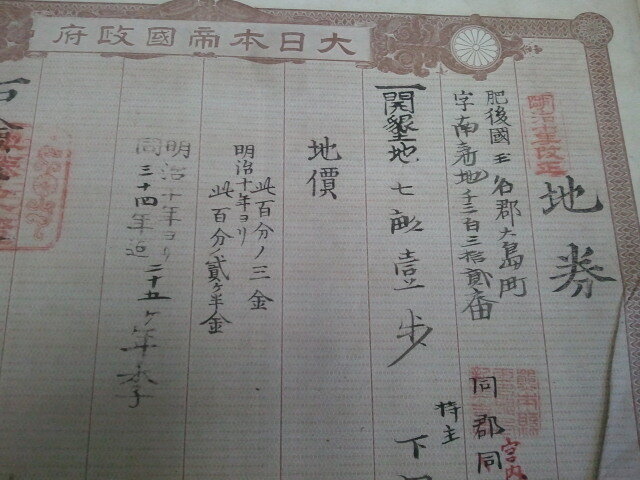 大日本帝國政府
地券
肥後國玉名郡大島町
字南新地千三百三拾貳番
同郡同
持主
下
一開墾地七畝壹步
地價
此百分ノ三金
明治十年ヨリ
此百分ノ貳ヶ半金
明治十年ヨリ二十五ヶ年季
同三十四年迄